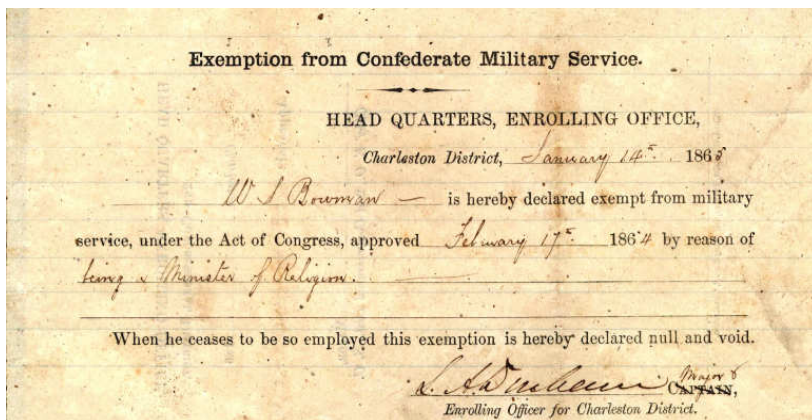 Exemption from Confederate Military Service.
HEAD QUARTERS, ENROLLING OFFICE,
Charleston District, January 14th. 1865
W S Bowman — is hereby declared exempt from military
service, under the Act of Congress, approved February 17th. 1864 by reason of
being a Minister of Religion. —
When he ceases to be so employed this exemption is hereby declared null and void.
Major &
CAPTAIN,
Enrolling Officer for Charleston District.